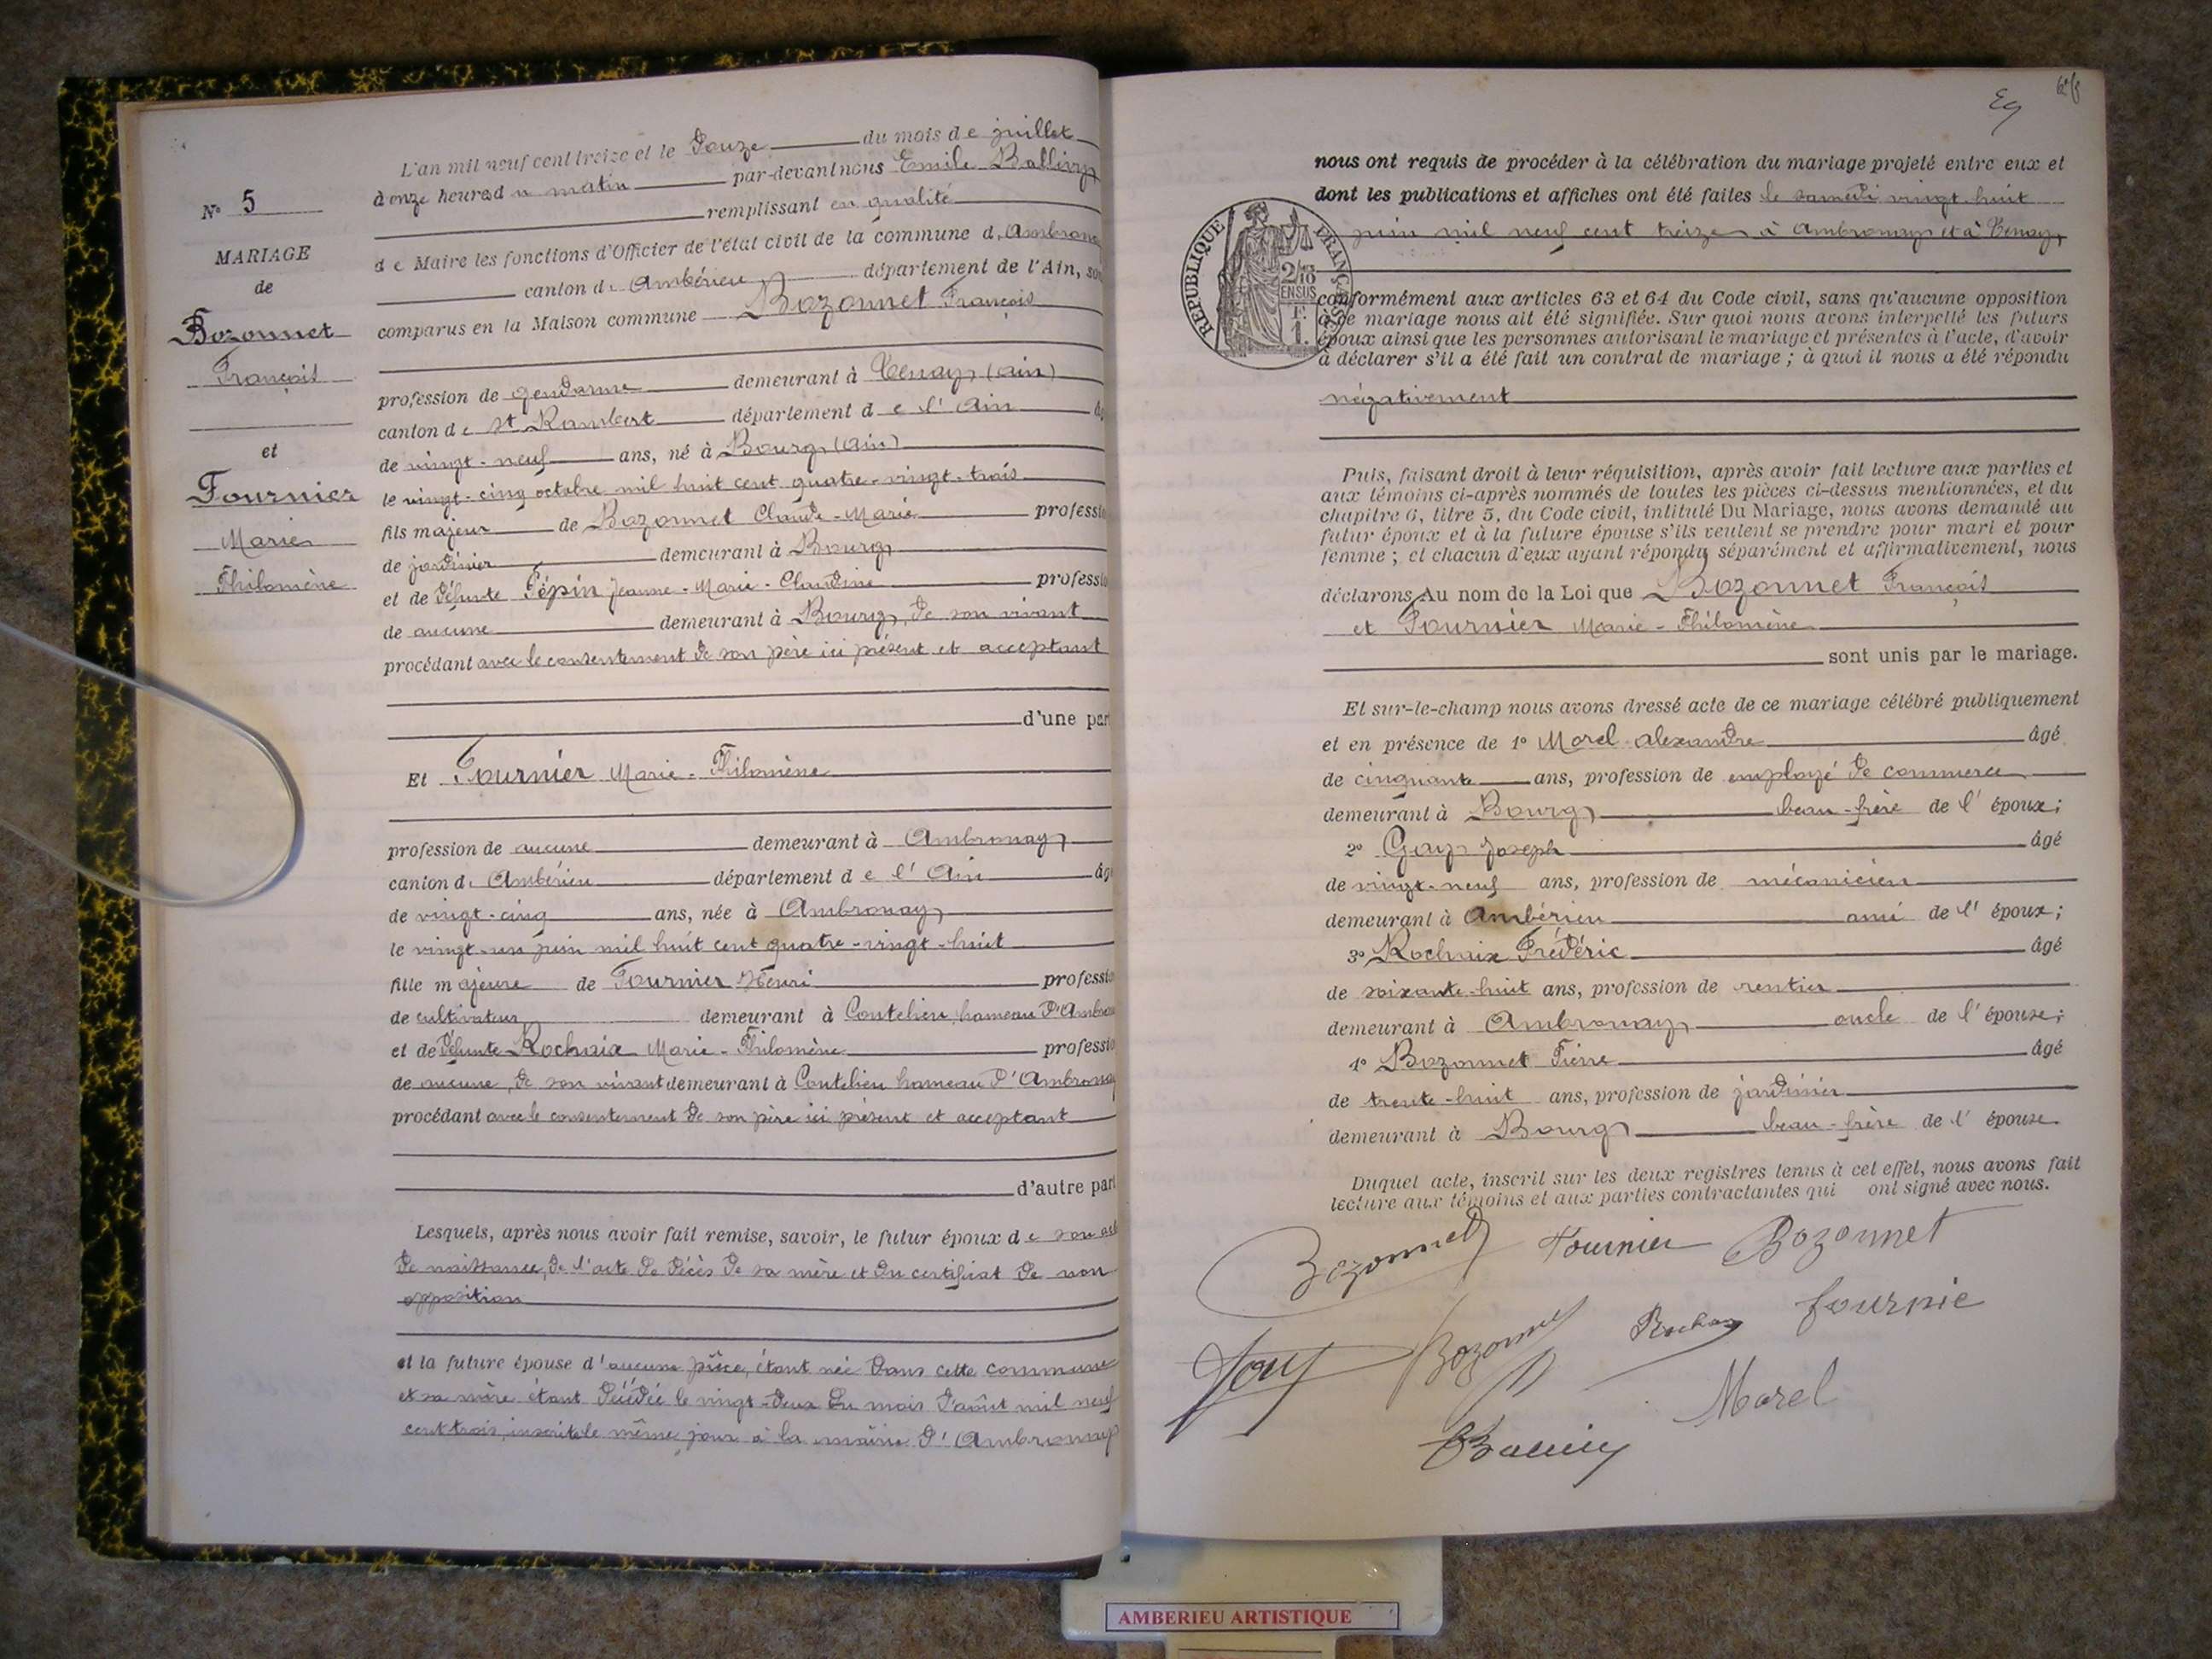 L'an mil neuf cent treize et le Douze du mois de juillet
à onze heures du matin par-devant nous Emile Ballivy
remplissant en qualité
de Maire les fonctions d'Officier de l'état civil de la commune d'Ambronay
canton d. Ambérieu département de l'Ain, sont
comparus en la Maison commune Bozonnet François
N° 5
MARIAGE
de
Bozonnet
François
et
Fournier
Marie
Philomène
profession de gendarme demeurant à Tenay (ain)
canton de St Rambert département de l'Ain âgé
de vingt-neuf ans, né à Bourg (ain)
le vingt-cinq octobre mil huit cent quatre-vingt-trois
fils majeur de Bozonnet Claude-Marie profession
de jardinier demeurant à Bourg
et de Défunte Pépin Jeanne-Marie-Claudine profession
de aucune demeurant à Bourg, De son vivant
procédant avec le consentement De son père ici présent et acceptant
d'une part
Et Fournier Marie-Philomène
profession de aucune demeurant à Ambronay
canton d. Ambérieu département de l'Ain âgé
de vingt-cinq ans, née à Ambronay
le vingt-un juin mil huit cent quatre-vingt-huit
fille majeure de Fournier Henri profession
de cultivateur demeurant à Coutelieu, hameau D'Ambronay
et de Défunte Rochaix Marie-Philomène profession
de aucune, De son vivant demeurant à Coutelieu hameau D'Ambronay
procédant avec le consentement De son père ici présent et acceptant
d'autre part
Lesquels, après nous avoir fait remise, savoir, le futur époux de son acte
De naissance, De l'acte De Décès De sa mère et Du certificat De non
opposition
et la future épouse d'aucune pièce, étant née Dans cette commune
et sa mère étant Décédée le vingt-Deux Du mois D'août mil neuf
cent trois, inscrite le même jour à la mairie D'Ambronay
nous ont requis de procéder à la célébration du mariage projeté entre eux et
dont les publications et affiches ont été faites le samedi vingt-huit
juin mil neuf cent treize à Ambronay et à Tenay,
RÉPUBLIQUE FRANÇAISE
2/10
EN SUS
F.
1.
conformément aux articles 63 et 64 du Code civil, sans qu'aucune opposition
à ce mariage nous ait été signifiée. Sur quoi nous avons interpellé les futurs
époux ainsi que les personnes autorisant le mariage et présentes à l'acte, d'avoir
à déclarer s'il a été fait un contrat de mariage ; à quoi il nous a été répondu
négativement
Puis, faisant droit à leur réquisition, après avoir fait lecture aux parties et
aux témoins ci-après nommés de toutes les pièces ci-dessus mentionnées, et du
chapitre 6, titre 5, du Code civil, intitulé Du Mariage, nous avons demandé au
futur époux et à la future épouse s'ils veulent se prendre pour mari et pour
femme ; et chacun d'eux ayant répondu séparément et affirmativement, nous
déclarons Au nom de la Loi que Bozonnet François
et Fournier Marie-Philomène
sont unis par le mariage.
Et sur-le-champ nous avons dressé acte de ce mariage célébré publiquement
et en présence de 1° Morel Alexandre âgé
de cinquante ans, profession de employé De commerce
demeurant à Bourg beau-frère de l'époux;
2° Gay Joseph âgé
de vingt-neuf ans, profession de mécanicien
demeurant à Ambérieu ami de l'époux;
3° Rochaix Frédéric âgé
de soixante-huit ans, profession de rentier
demeurant à Ambronay oncle de l'épouse;
4° Bozonnet Pierre âgé
de trente-huit ans, profession de jardinier
demeurant à Bourg beau-frère de l'épouse
Duquel acte, inscrit sur les deux registres tenus à cet effet, nous avons fait
lecture aux témoins et aux parties contractantes qui ont signé avec nous.
Bozonnet Fournier Bozonnet
Bozonnet Fournie
Morel
AMBERIEU ARTISTIQUE